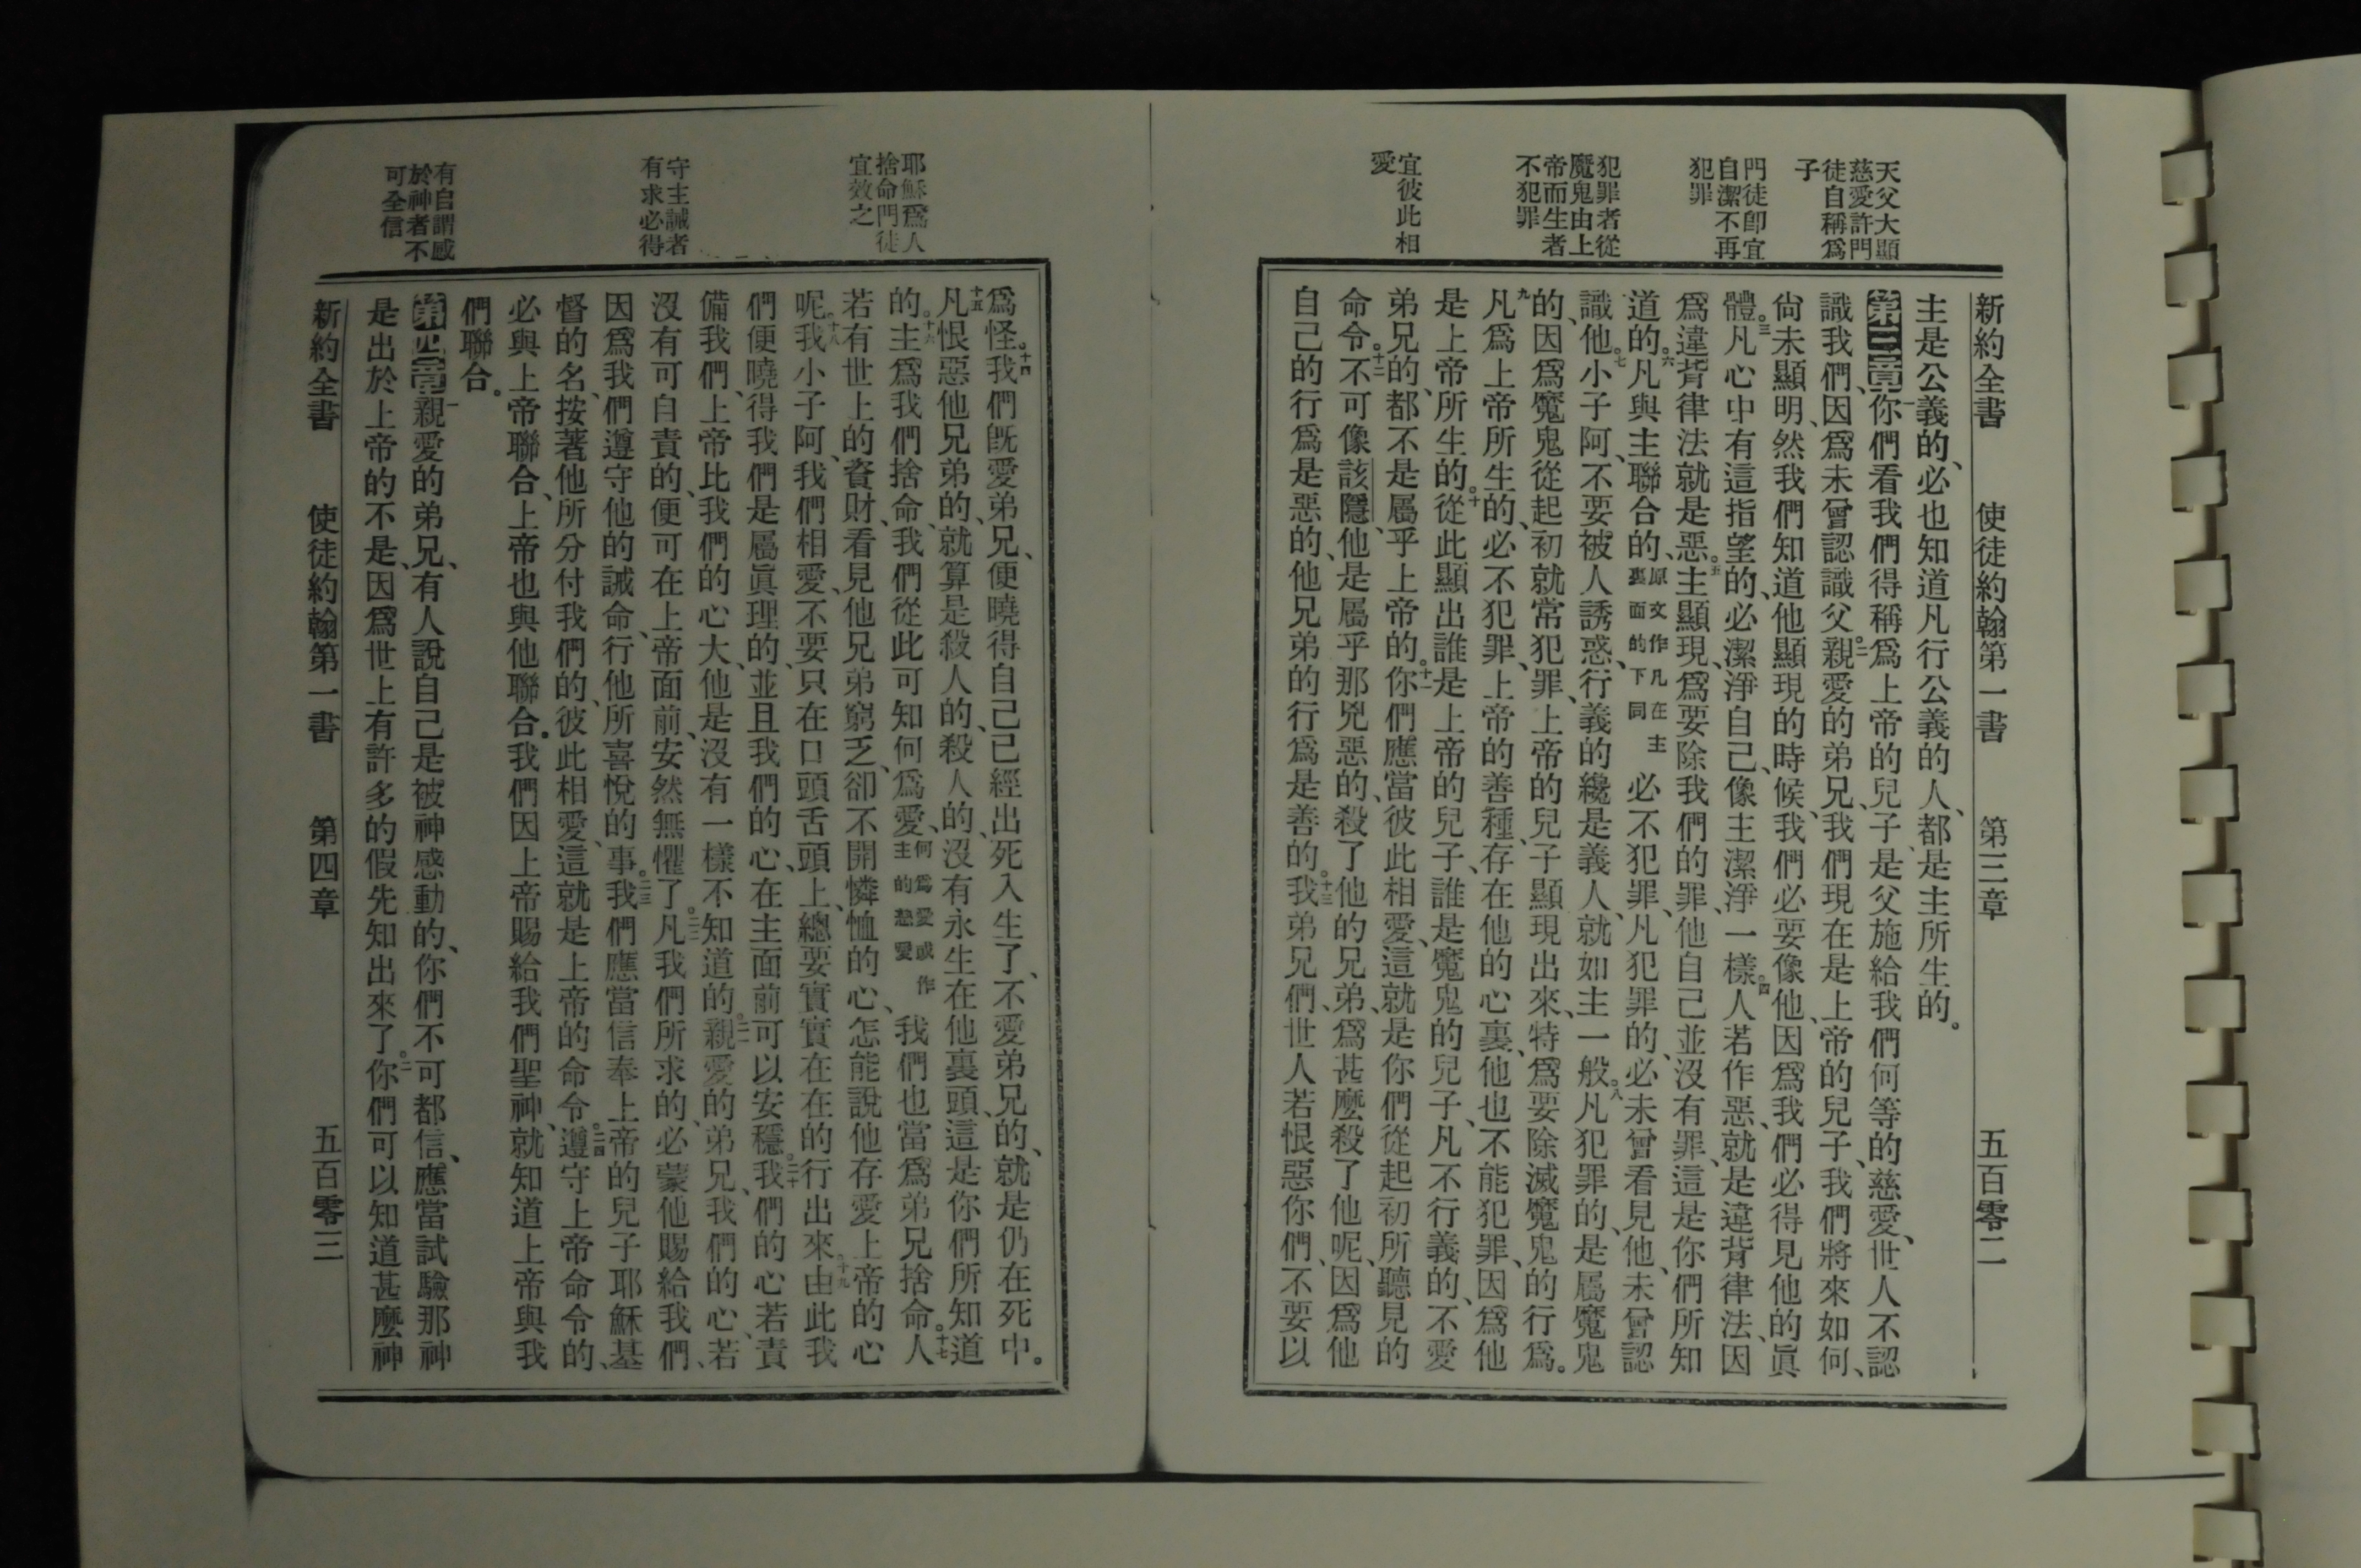 天父大顯
慈愛許門
徒自稱爲
子
門徒卽宜
自潔不再
犯罪
犯罪者從
魔鬼由上
帝而生者
不犯罪
宜彼此相
愛
新約全書 使徒約翰第一書 第三章 五百零二
主是公義的、必也知道凡行公義的人、都是主所生的。
第三章 一你們看我們得稱爲上帝的兒子、是父施給我們何等的慈愛、世人不認
識我們、因爲未曾認識父。二親愛的弟兄、我們現在是上帝的兒子、我們將來如何、
尙未顯明、然我們知道他顯現的時候、我們必要像他、因爲我們必得見他的眞
體。三凡心中有這指望的、必潔淨自己、像主潔淨一樣。四人若作惡、就是違背律法、因
爲違背律法就是惡。五主顯現、爲要除我們的罪、他自己並沒有罪、這是你們所知
道的。六凡與主聯合的、原文作凡在主裏面的下同必不犯罪、凡犯罪的、必未曾看見他、未曾認
識他。七小子阿、不要被人誘惑、行義的纔是義人、就如主一般。八凡犯罪的、是屬魔鬼
的、因爲魔鬼從起初就常犯罪、上帝的兒子顯現出來、特爲要除滅魔鬼的行爲。
九凡爲上帝所生的、必不犯罪、上帝的善種、存在他的心裏、他也不能犯罪、因爲他
是上帝所生的。十從此顯出誰是上帝的兒子、誰是魔鬼的兒子、凡不行義的、不愛
弟兄的、都不是屬乎上帝的。十一你們應當彼此相愛、這就是你們從起初所聽見的
命令。十二不可像該隱、他是屬乎那兇惡的、殺了他的兄弟、爲甚麼殺了他呢、因爲他
自己的行爲是惡的、他兄弟的行爲是善的。十三我弟兄們、世人若恨惡你們、不要以
耶穌爲人
捨命門徒
宜效之
守主誡者
有求必得
有自謂感
於神者不
可全信
爲怪。十四我們旣愛弟兄、便曉得自己已經出死入生了、不愛弟兄的、就是仍在死中。
十五凡恨惡他兄弟的、就算是殺人的、殺人的、沒有永生在他裏頭、這是你們所知道
的。十六主爲我們捨命、我們從此可知何爲愛、何爲愛或作主的慈愛我們也當爲弟兄捨命。十七人
若有世上的資財、看見他兄弟窮乏、卻不開憐恤的心、怎能說他存愛上帝的心
呢。十八我小子阿、我們相愛、不要只在口頭舌頭上、總要實實在在的行出來。十九由此我
們便曉得我們是屬眞理的、並且我們的心、在主面前可以安穩。二十我們的心若責
備我們、上帝比我們的心大、他是沒有一樣不知道的。二一親愛的弟兄、我們的心、若
沒有可自責的、便可在上帝面前、安然無懼了。二二凡我們所求的、必蒙他賜給我們、
因爲我們遵守他的誡命、行他所喜悅的事。二三我們應當信奉上帝的兒子耶穌基
督的名、按著他所分付我們的、彼此相愛、這就是上帝的命令。二四遵守上帝命令的、
必與上帝聯合、上帝也與他聯合、我們因上帝賜給我們聖神、就知道上帝與我
們聯合。
第四章 一親愛的弟兄、有人說自己是被神感動的、你們不可都信、應當試驗那神
是出於上帝的不是、因爲世上有許多的假先知出來了。二你們可以知道甚麼神
新約全書 使徒約翰第一書 第四章 五百零三